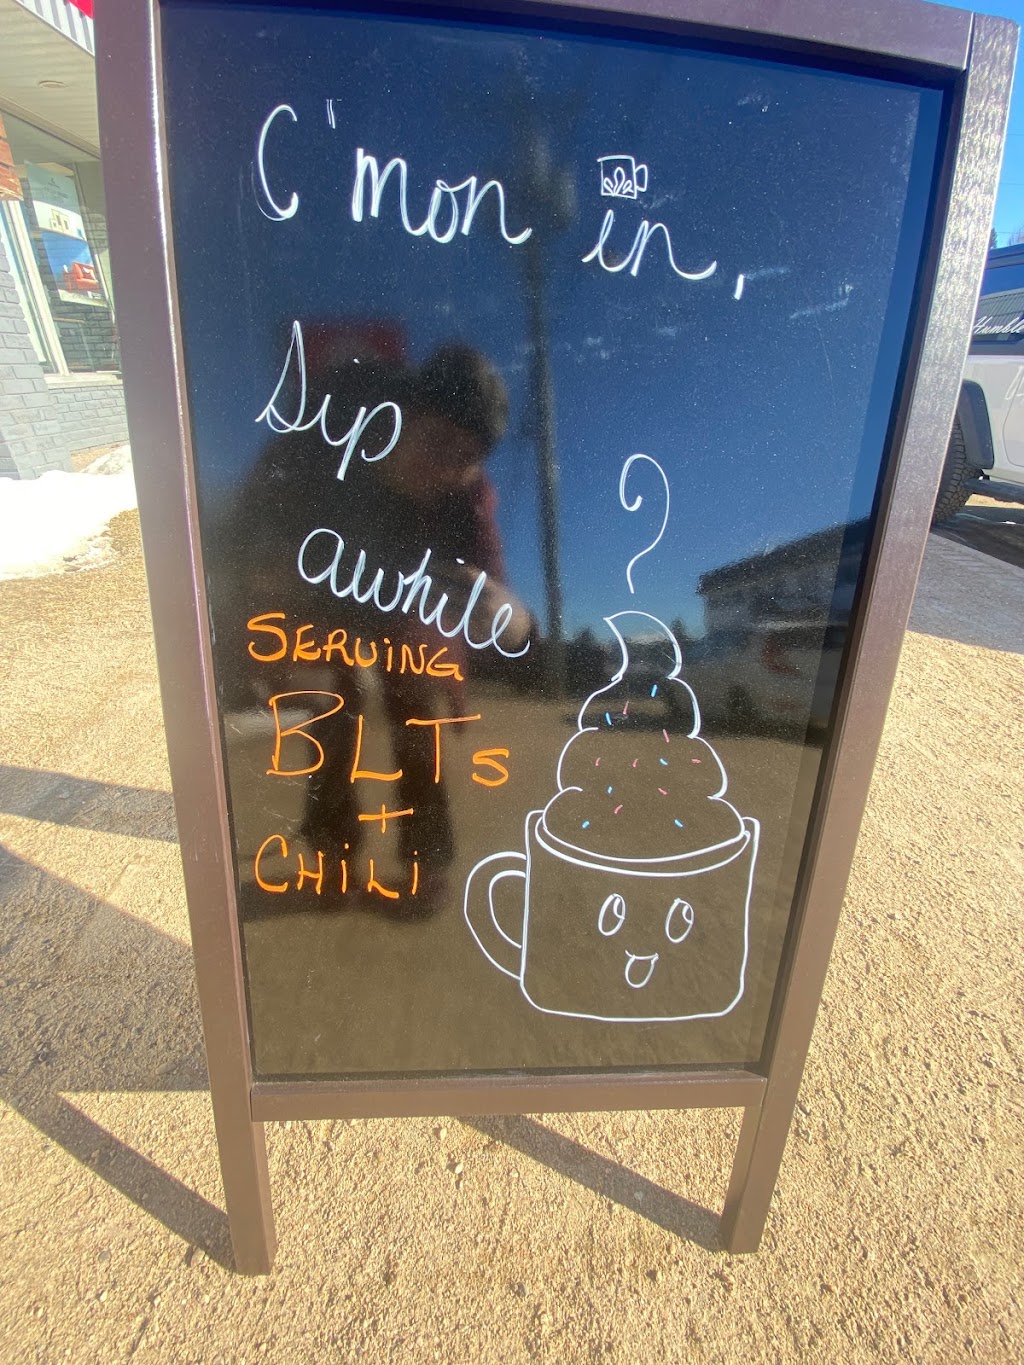 C'mon in,
Sip
awhile
SERViNG
BLTs
+
CHiLi
Humble